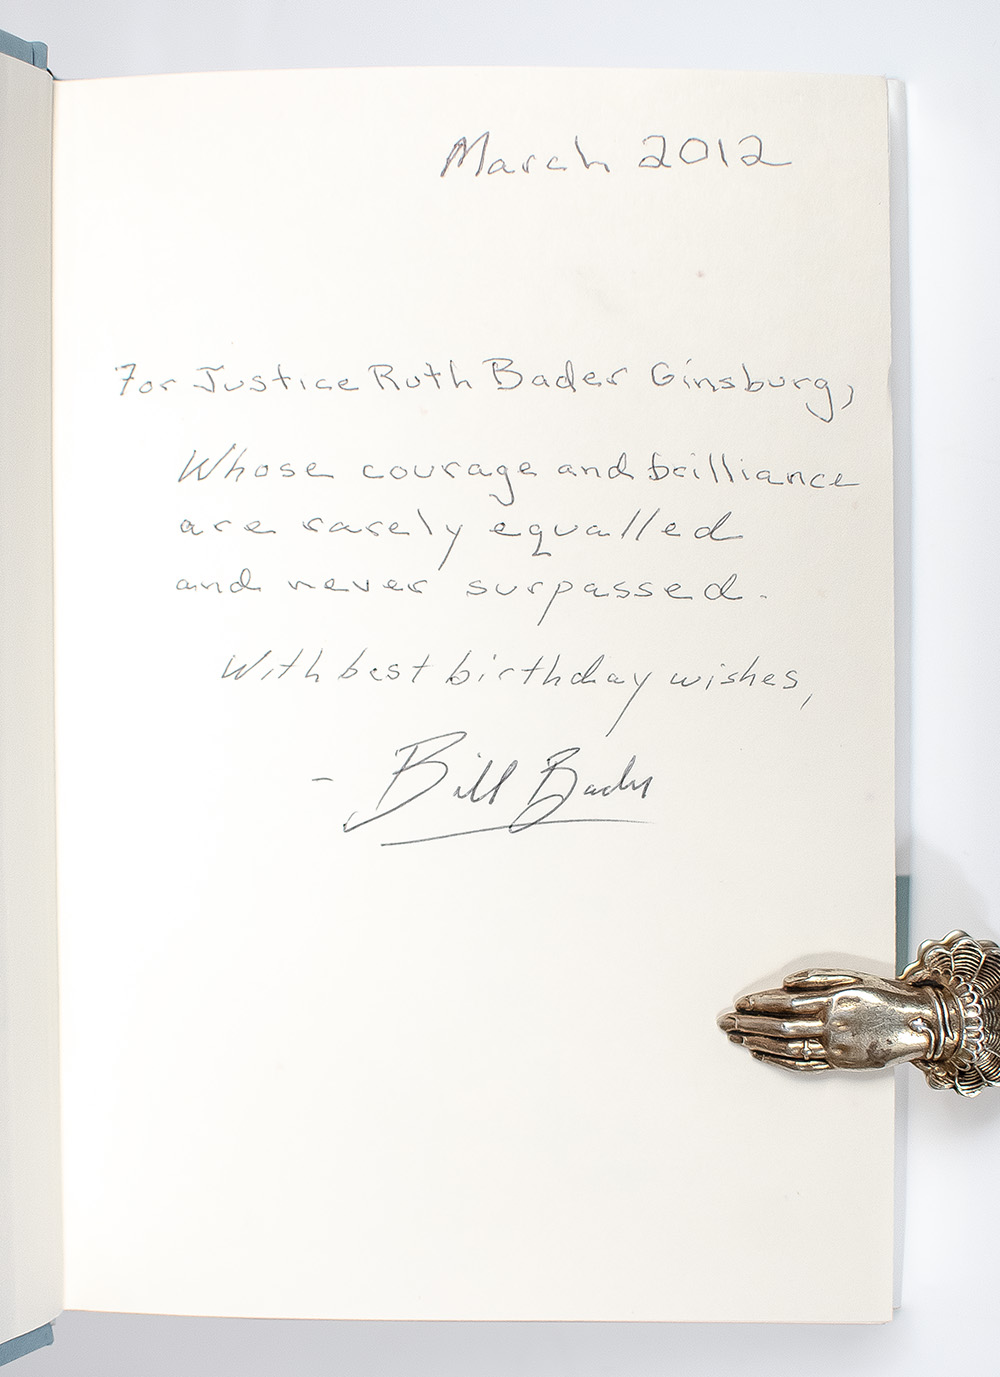 March 2012
For Justice Ruth Bader Ginsburg,
Whose courage and brilliance
are rarely equalled
and never surpassed.
With best birthday wishes,
- Bill Bader